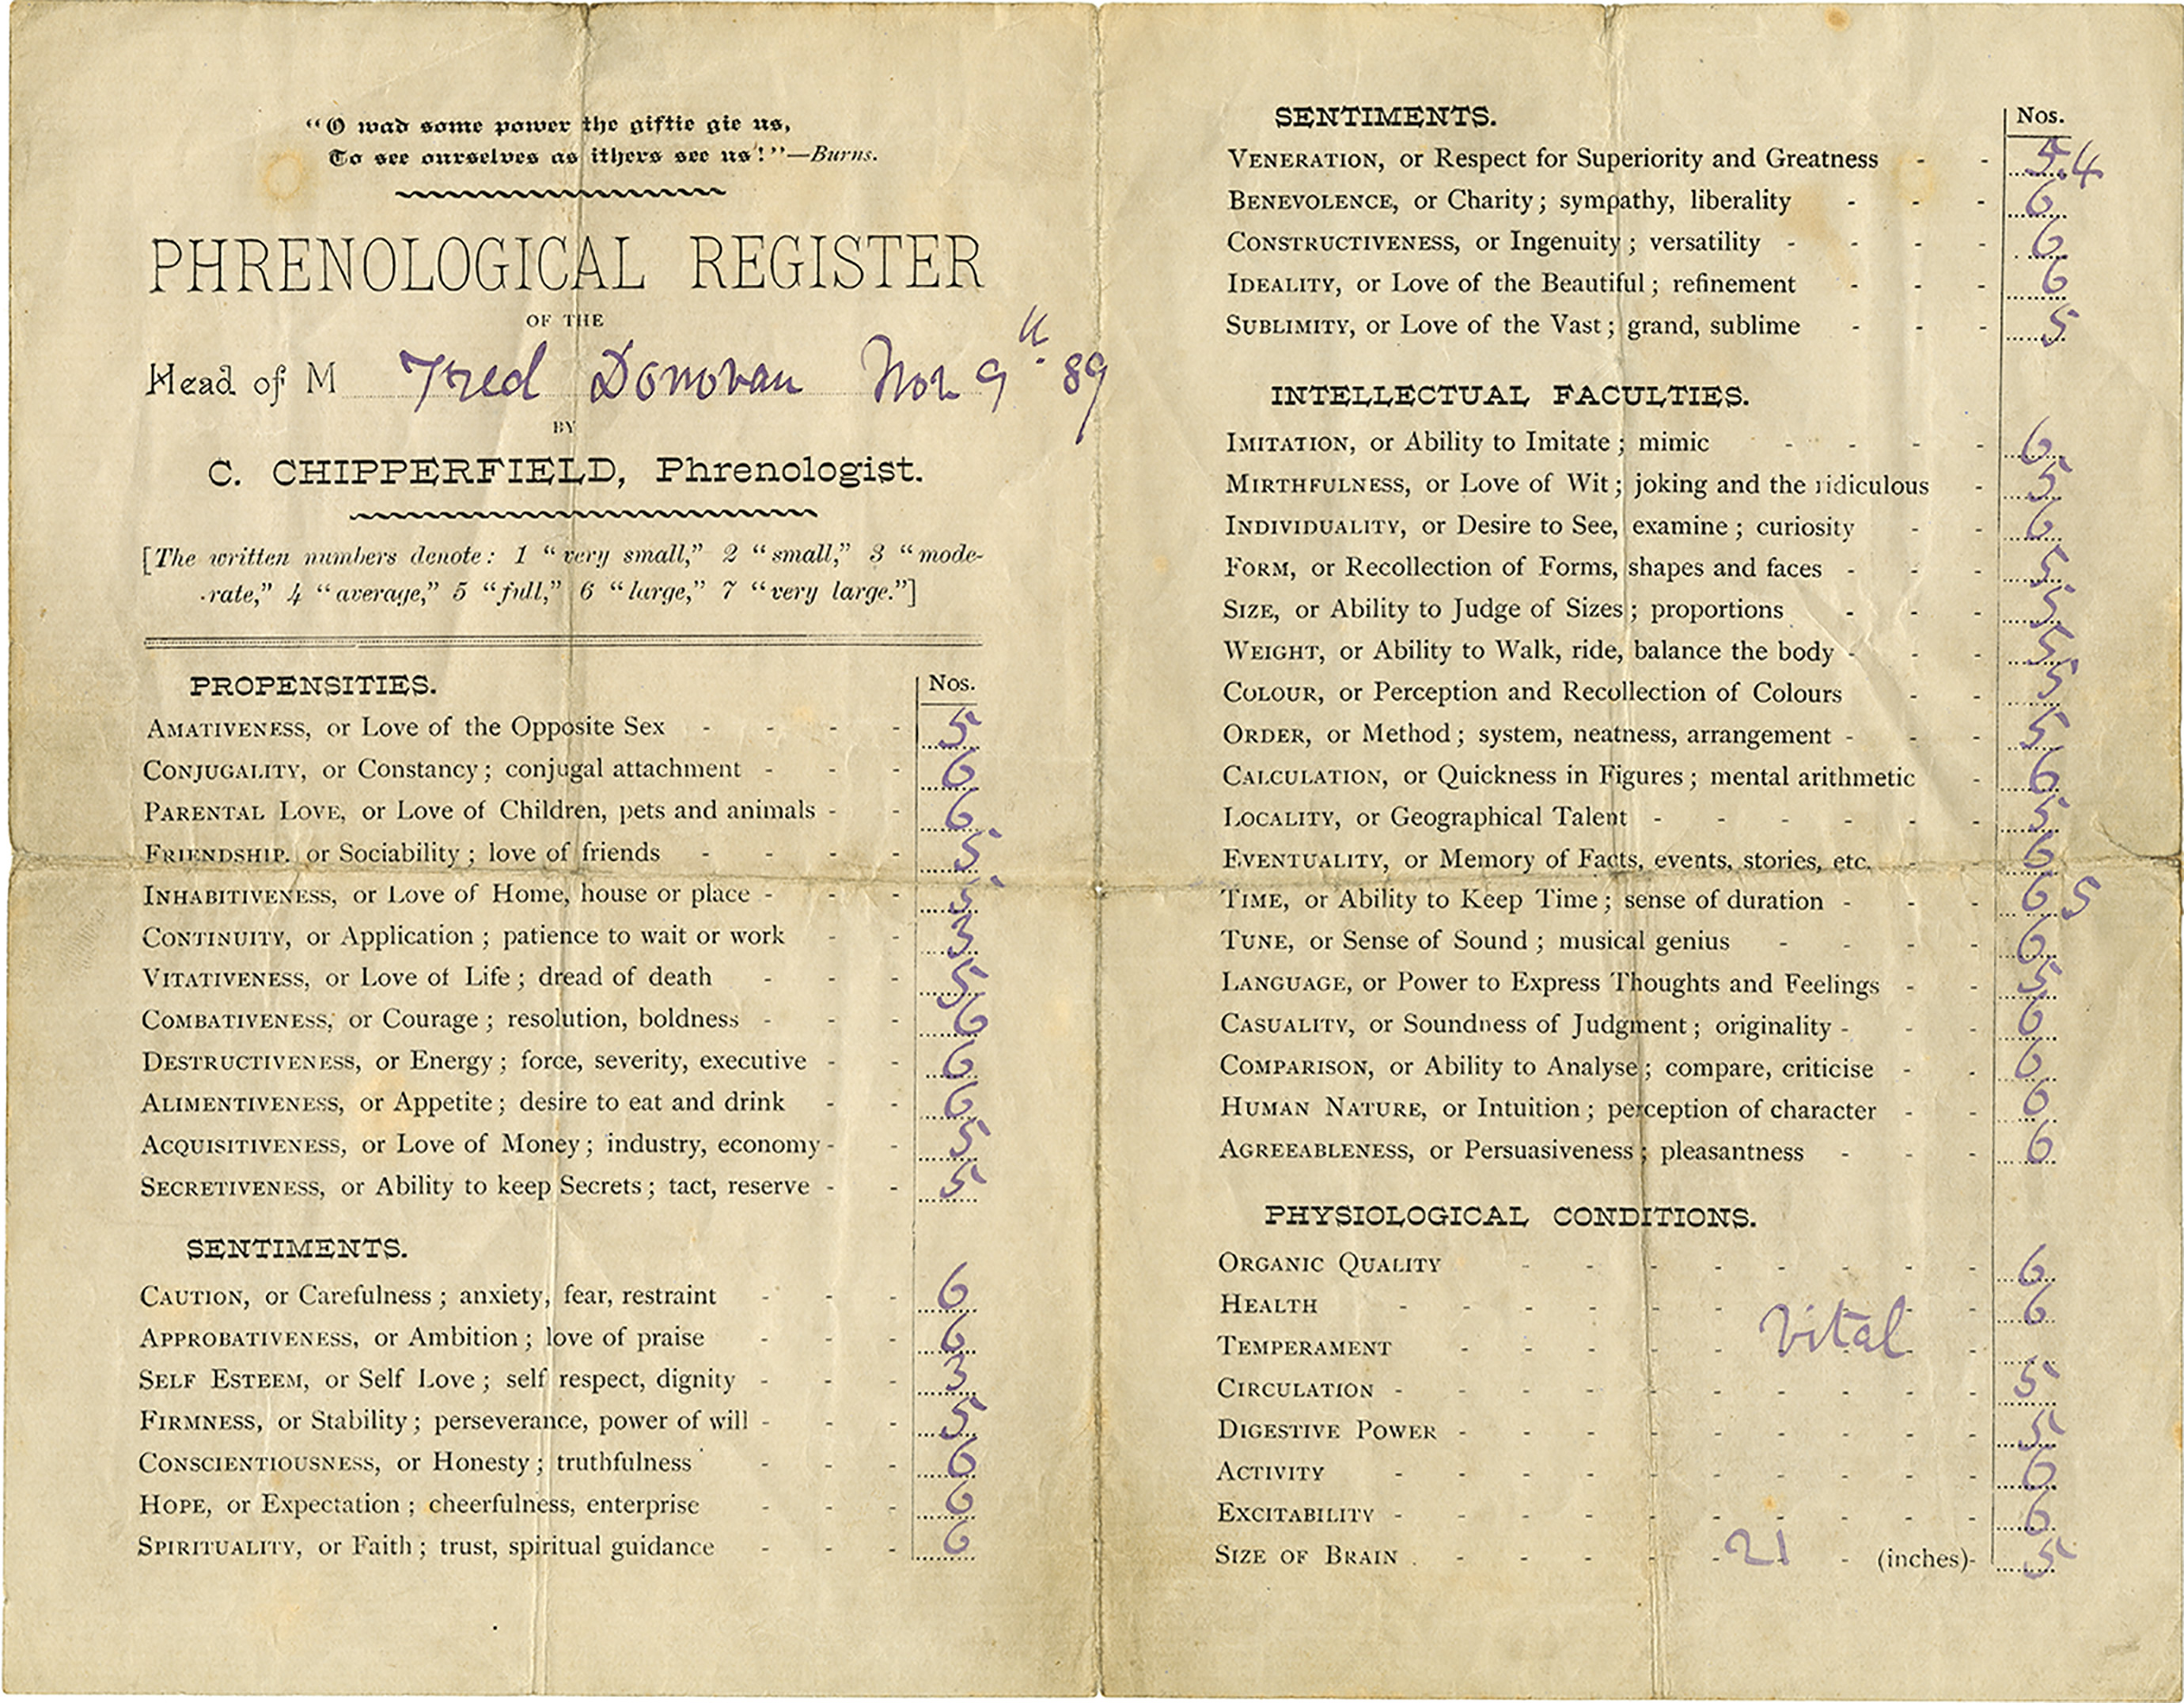 “O wad some power the giftie gie us,
To see ourselves as ithers see us!”—Burns.
PHRENOLOGICAL REGISTER
OF THE
Head of M Fred Donovan Nov 9th 89
BY
C. CHIPPERFIELD, Phrenologist.
[The written numbers denote: 1 “very small,” 2 “small,” 3 “mode-
rate,” 4 “average,” 5 “full,” 6 “large,” 7 “very large.”]
PROPENSITIES. Nos.
AMATIVENESS, or Love of the Opposite Sex - - - - 5
CONJUGALITY, or Constancy; conjugal attachment - - - 6
PARENTAL LOVE, or Love of Children, pets and animals - - 6
FRIENDSHIP. or Sociability; love of friends - - - - 5
INHABITIVENESS, or Love of Home, house or place - - - 5
CONTINUITY, or Application; patience to wait or work - - 3
VITATIVENESS, or Love of Life; dread of death - - - 5
COMBATIVENESS, or Courage; resolution, boldness - - - 6
DESTRUCTIVENESS, or Energy; force, severity, executive - - 6
ALIMENTIVENESS, or Appetite; desire to eat and drink - - 6
ACQUISITIVENESS, or Love of Money; industry, economy - - 5
SECRETIVENESS, or Ability to keep Secrets; tact, reserve - - 5
SENTIMENTS.
CAUTION, or Carefulness; anxiety, fear, restraint - - - 6
APPROBATIVENESS, or Ambition; love of praise - - - 6
SELF ESTEEM, or Self Love; self respect, dignity - - - 3
FIRMNESS, or Stability; perseverance, power of will - - - 5
CONSCIENTIOUSNESS, or Honesty; truthfulness - - - 6
HOPE, or Expectation; cheerfulness, enterprise - - - 6
SPIRITUALITY, or Faith; trust, spiritual guidance - - - 6
SENTIMENTS. Nos.
VENERATION, or Respect for Superiority and Greatness - - 5.4
BENEVOLENCE, or Charity; sympathy, liberality - - - 6
CONSTRUCTIVENESS, or Ingenuity; versatility - - - - 6
IDEALITY, or Love of the Beautiful; refinement - - - 6
SUBLIMITY, or Love of the Vast; grand, sublime - - - 5
INTELLECTUAL FACULTIES.
IMITATION, or Ability to Imitate; mimic - - - - 6
MIRTHFULNESS, or Love of Wit; joking and the ridiculous - 5
INDIVIDUALITY, or Desire to See, examine; curiosity - - 6
FORM, or Recollection of Forms, shapes and faces - - - 5
SIZE, or Ability to Judge of Sizes; proportions - - - 5
WEIGHT, or Ability to Walk, ride, balance the body - - - 5
COLOUR, or Perception and Recollection of Colours - - 5
ORDER, or Method; system, neatness, arrangement - - - 5
CALCULATION, or Quickness in Figures; mental arithmetic - 6
LOCALITY, or Geographical Talent - - - - - - 5
EVENTUALITY, or Memory of Facts, events, stories, etc. - - 6
TIME, or Ability to Keep Time; sense of duration - - - 6 5
TUNE, or Sense of Sound; musical genius - - - - 6
LANGUAGE, or Power to Express Thoughts and Feelings - - 5
CASUALITY, or Soundness of Judgment; originality - - - 6
COMPARISON, or Ability to Analyse; compare, criticise - - 6
HUMAN NATURE, or Intuition; perception of character - - 6
AGREEABLENESS, or Persuasiveness; pleasantness - - - 6
PHYSIOLOGICAL CONDITIONS.
ORGANIC QUALITY - - - - - - - - 6
HEALTH - - - - - - - - - - 6
TEMPERAMENT - - - - - Vital - - -
CIRCULATION - - - - - - - - - - 5
DIGESTIVE POWER - - - - - - - - - 5
ACTIVITY - - - - - - - - - - 6
EXCITABILITY - - - - - - - - - - 6
SIZE OF BRAIN - - - - - 21 - (inches) - 5